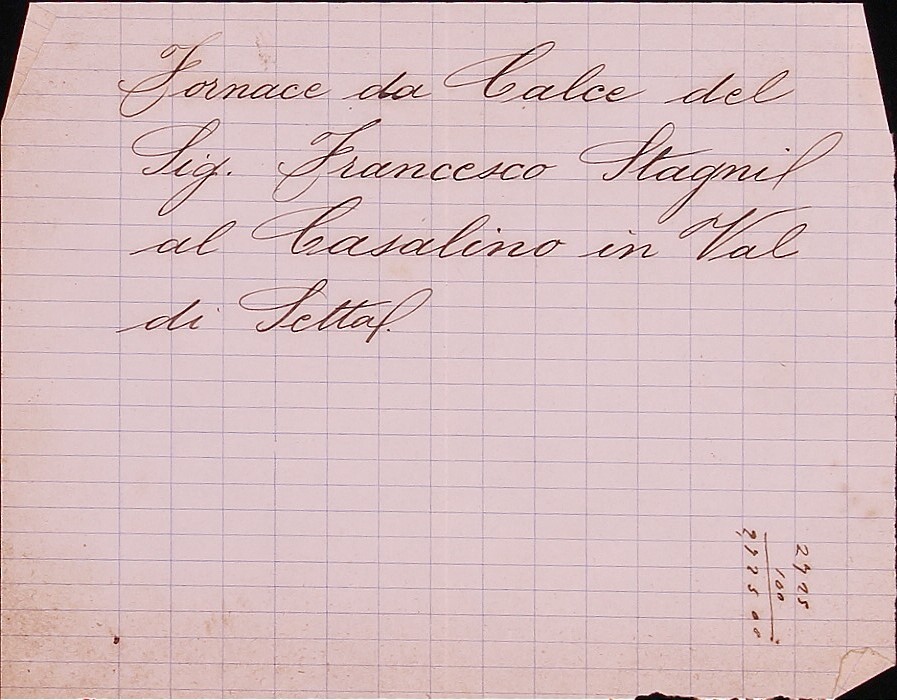 Fornace da Calce del
Sig. Francesco Stagni
al Casalino in Val
di Setta.
2925
100
292500